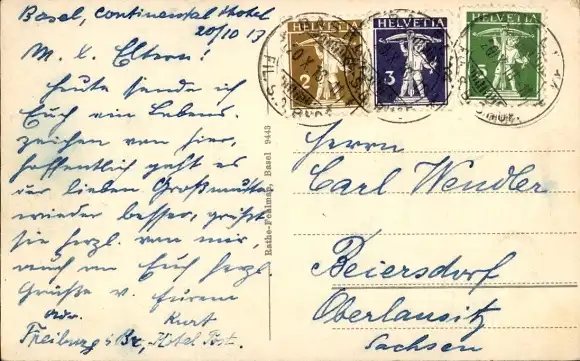 Basel, Continental Hotel
20/10 13
M. l. Eltern!
Heute sende ich
Euch ein Lebens-
zeichen von hier,
hoffentlich geht es
der lieben Großmutter
wieder besser, grüßt
sie herzl. von mir,
auch an Euch herzl.
Grüße v. Eurem
Kurt
Adr.
Freiburg i Br, Hotel Post.
Rathe-Fehlmap, Basel 9443
HELVETIA
2
HELVETIA
3
HELVETIA
5
Herrn
Carl Wendler
Beiersdorf
Oberlausitz
Sachsen